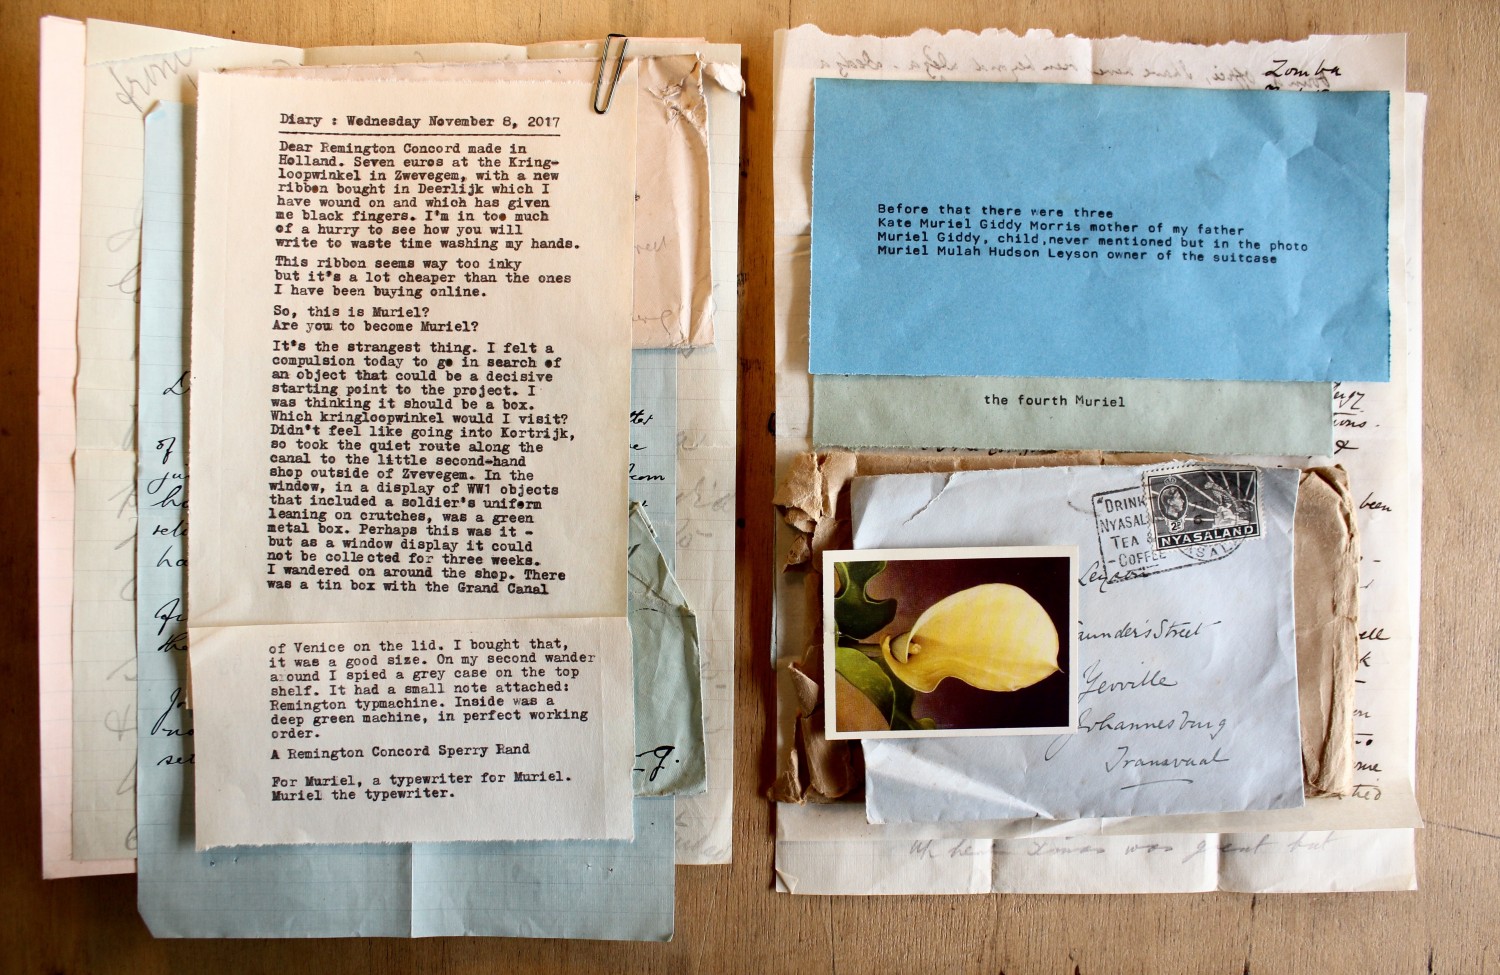 from
Diary : Wednesday November 8, 2017
Dear Remington Concord made in
Holland. Seven euros at the Kring-
loopwinkel in Zwevegem, with a new
ribbon bought in Deerlijk which I
have wound on and which has given
me black fingers. I'm in too much
of a hurry to see how you will
write to waste time washing my hands.
This ribbon seems way too inky
but it's a lot cheaper than the ones
I have been buying online.
So, this is Muriel?
Are you to become Muriel?
It's the strangest thing. I felt a
compulsion today to go in search of
an object that could be a decisive
starting point to the project. I
was thinking it should be a box.
Which kringloopwinkel would I visit?
Didn't feel like going into Kortrijk,
so took the quiet route along the
canal to the little second-hand
shop outside of Zvevegem. In the
window, in a display of WW1 objects
that included a soldier's uniform
leaning on crutches, was a green
metal box. Perhaps this was it -
but as a window display it could
not be collected for three weeks.
I wandered on around the shop. There
was a tin box with the Grand Canal
of Venice on the lid. I bought that,
it was a good size. On my second wander
around I spied a grey case on the top
shelf. It had a small note attached:
Remington typmachine. Inside was a
deep green machine, in perfect working
order.
A Remington Concord Sperry Rand
For Muriel, a typewriter for Muriel.
Muriel the typewriter.
of
Zomba
Before that there were three
Kate Muriel Giddy Morris mother of my father
Muriel Giddy, child,never mentioned but in the photo
Muriel Mulah Hudson Leyson owner of the suitcase
the fourth Muriel
been
"DRINK
NYASAL
TEA &
COFFEE
2D
NYASALAND
Leyson
aunder's Street
Yeoville
Johannesburg
Transvaal
Xmas was great but